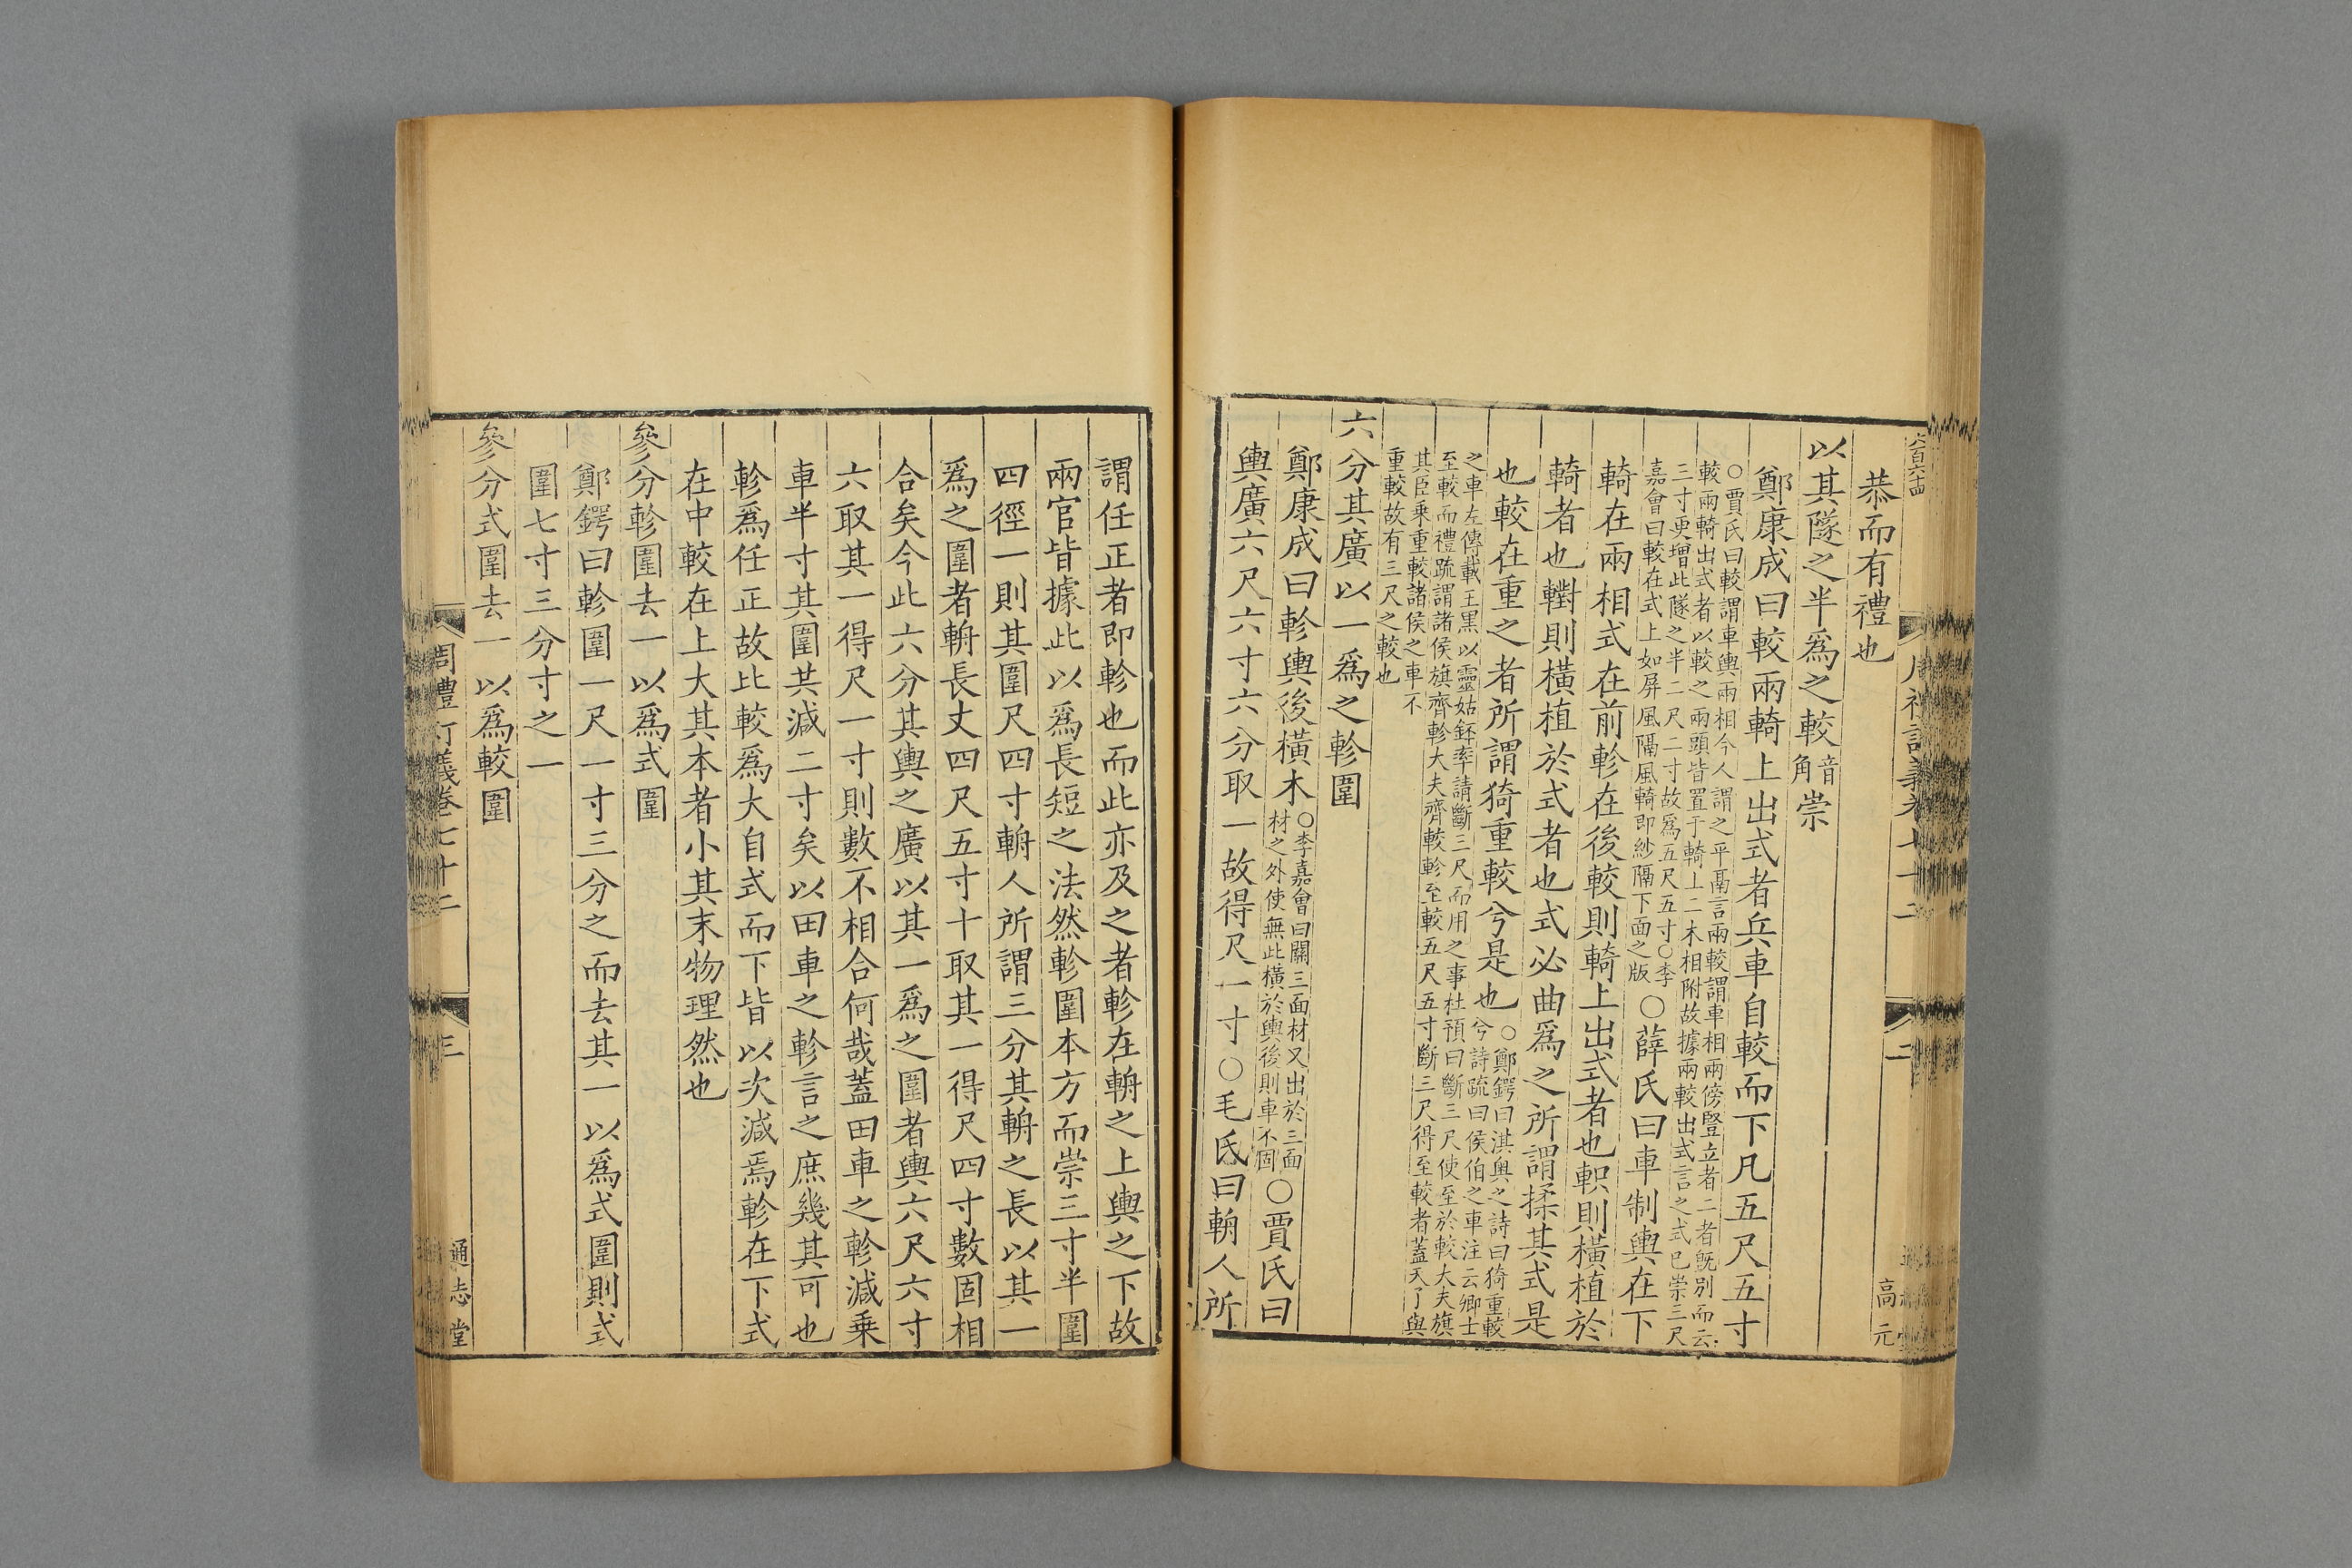 恭而有禮也
以其隧之半爲之較音角崇
鄭康成曰較兩輢上出式者兵車自較而下凡五尺五寸
○賈氏曰較謂車輿兩相今人謂之平鬲言兩較謂車相兩傍豎立者二者既別而云
較兩輢出式者以較之兩頭皆置于輢上二木相附故據兩較出式言之式已崇三尺
三寸更增此隧之半二尺二寸故爲五尺五寸○李
嘉會曰較在式上如屏風隔風輢即紗隔下面之版
○薛氏曰車制輿在下
輢在兩相式在前軫在後較則輢上出式者也軹則橫植於
輢者也轛則橫植於式者也式必曲爲之所謂揉其式是
也較在重之者所謂猗重較兮是也
○鄭鍔曰淇奧之詩曰猗重較
兮詩疏曰侯伯之車注云卿士
之車左傳載王黑以靈姑銔率請斷三尺而用之事杜預曰斷三尺使至於較大夫旗
至較而禮疏謂諸侯旗齊軫大夫齊較軫至較五尺五寸斷三尺得至較者蓋天子與
其臣乘重較諸侯之車不
重較故有三尺之較也
六分其廣以一爲之軫圍
鄭康成曰軫輿後橫木
○李嘉會曰闗三面材又出於三面
材之外使無此橫於輿後則車不固
○賈氏曰
輿廣六尺六寸六分取一故得尺一寸○毛氏曰輈人所
六百六十四
周禮訂義卷七十二
二
高元
謂任正者即軫也而此亦及之者軫在輈之上輿之下故
兩官皆據此以爲長短之法然軫圍本方而崇三寸半圍
四徑一則其圍尺四寸輈人所謂三分其輈之長以其一
爲之圍者輈長丈四尺五寸十取其一得尺四寸數固相
合矣今此六分其輿之廣以其一爲之圍者輿六尺六寸
六取其一得尺一寸則數不相合何哉蓋田車之軫減乘
車半寸其圍其減二寸矣以田車之軫言之庶幾其可也
軫爲任正故比較爲大自式而下皆以次減焉軫在下式
在中較在上大其本者小其末物理然也
參分軫圍去一以爲式圍
鄭鍔曰軫圍一尺一寸三分之而去其一以爲式圍則式
圍七寸三分寸之一
參分式圍去一以爲較圍
周禮訂義卷七十二
三
通志堂